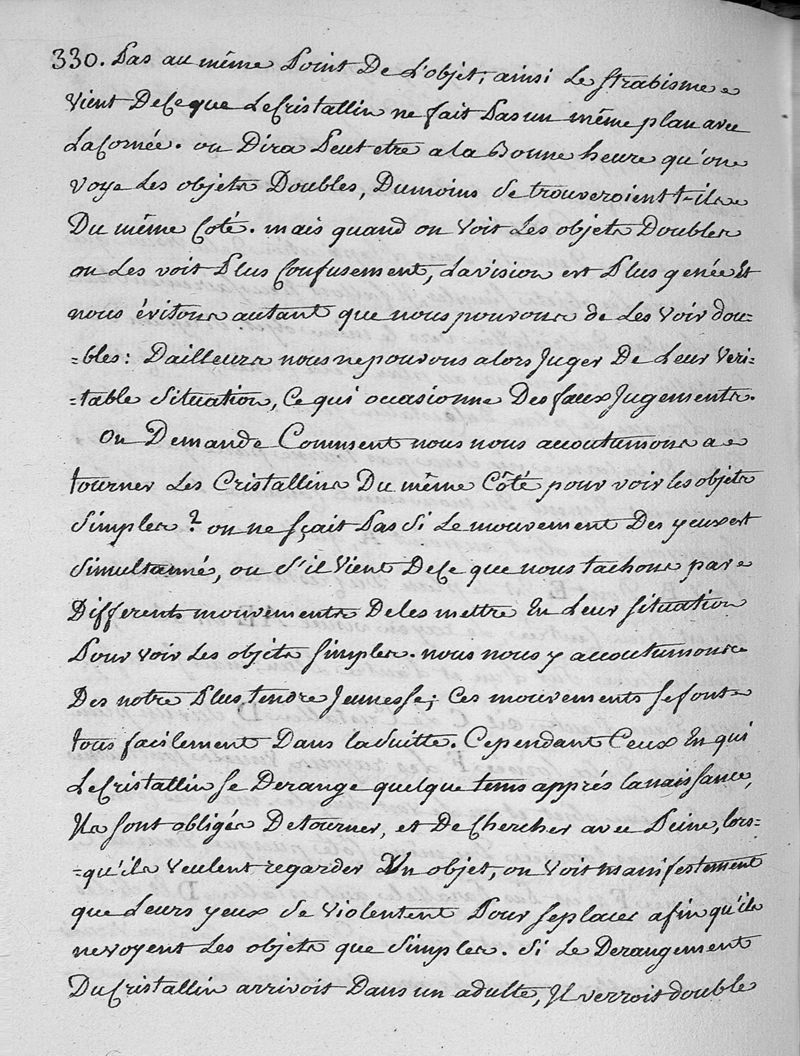 330. Pas au même Point De L'objet, ainsi Le strabisme
vient De Ce que Le Cristallin ne fait Pas un même plan avec
La Cornée. on Dira Peut etre a la Bonne heure qu'on
voye Les objets Doubles, Du moins se trouveroient t-ils
Du même Coté. mais quand on voit Les objets Doubles
on Les voit Plus Confusement, La vision est Plus genée Et
nous évitons autant que nous pouvons de Les voir dou-
=bles: Dailleurs nous ne pouvons alors Juger De Leur veri-
=table Situation, Ce qui occasionne Des faux Jugements.
On Demande Comment nous nous accoutumons a
tourner Les Cristallins Du même Côté pour voir les objets
Simples? on ne sçait Pas Si Le mouvement Des yeux est
Simultanné, ou S'il vient De Ce que nous tachons par
Differents mouvements De les mettre En Leur Situation
Pour voir Les objets simples. nous nous y accoutumons
Des notre Plus tendre Jeunesse; Ces mouvements se font
tous facilement Dans la Suitte. Cependant Ceux En qui
Le Cristallin se Derange quelque tems apprés la naissance,
Ils sont obligés De tourner, et De Chercher avec Peine, lors-
=qu'ils veulent regarder Un objet, on voit manifestement
que Leurs yeux se violentent Pour se placer afin qu'ils
ne voyent Les objets que Simples. Si Le Derangement
Du Cristallin arrivoit Dans un adulte, Il verroit double